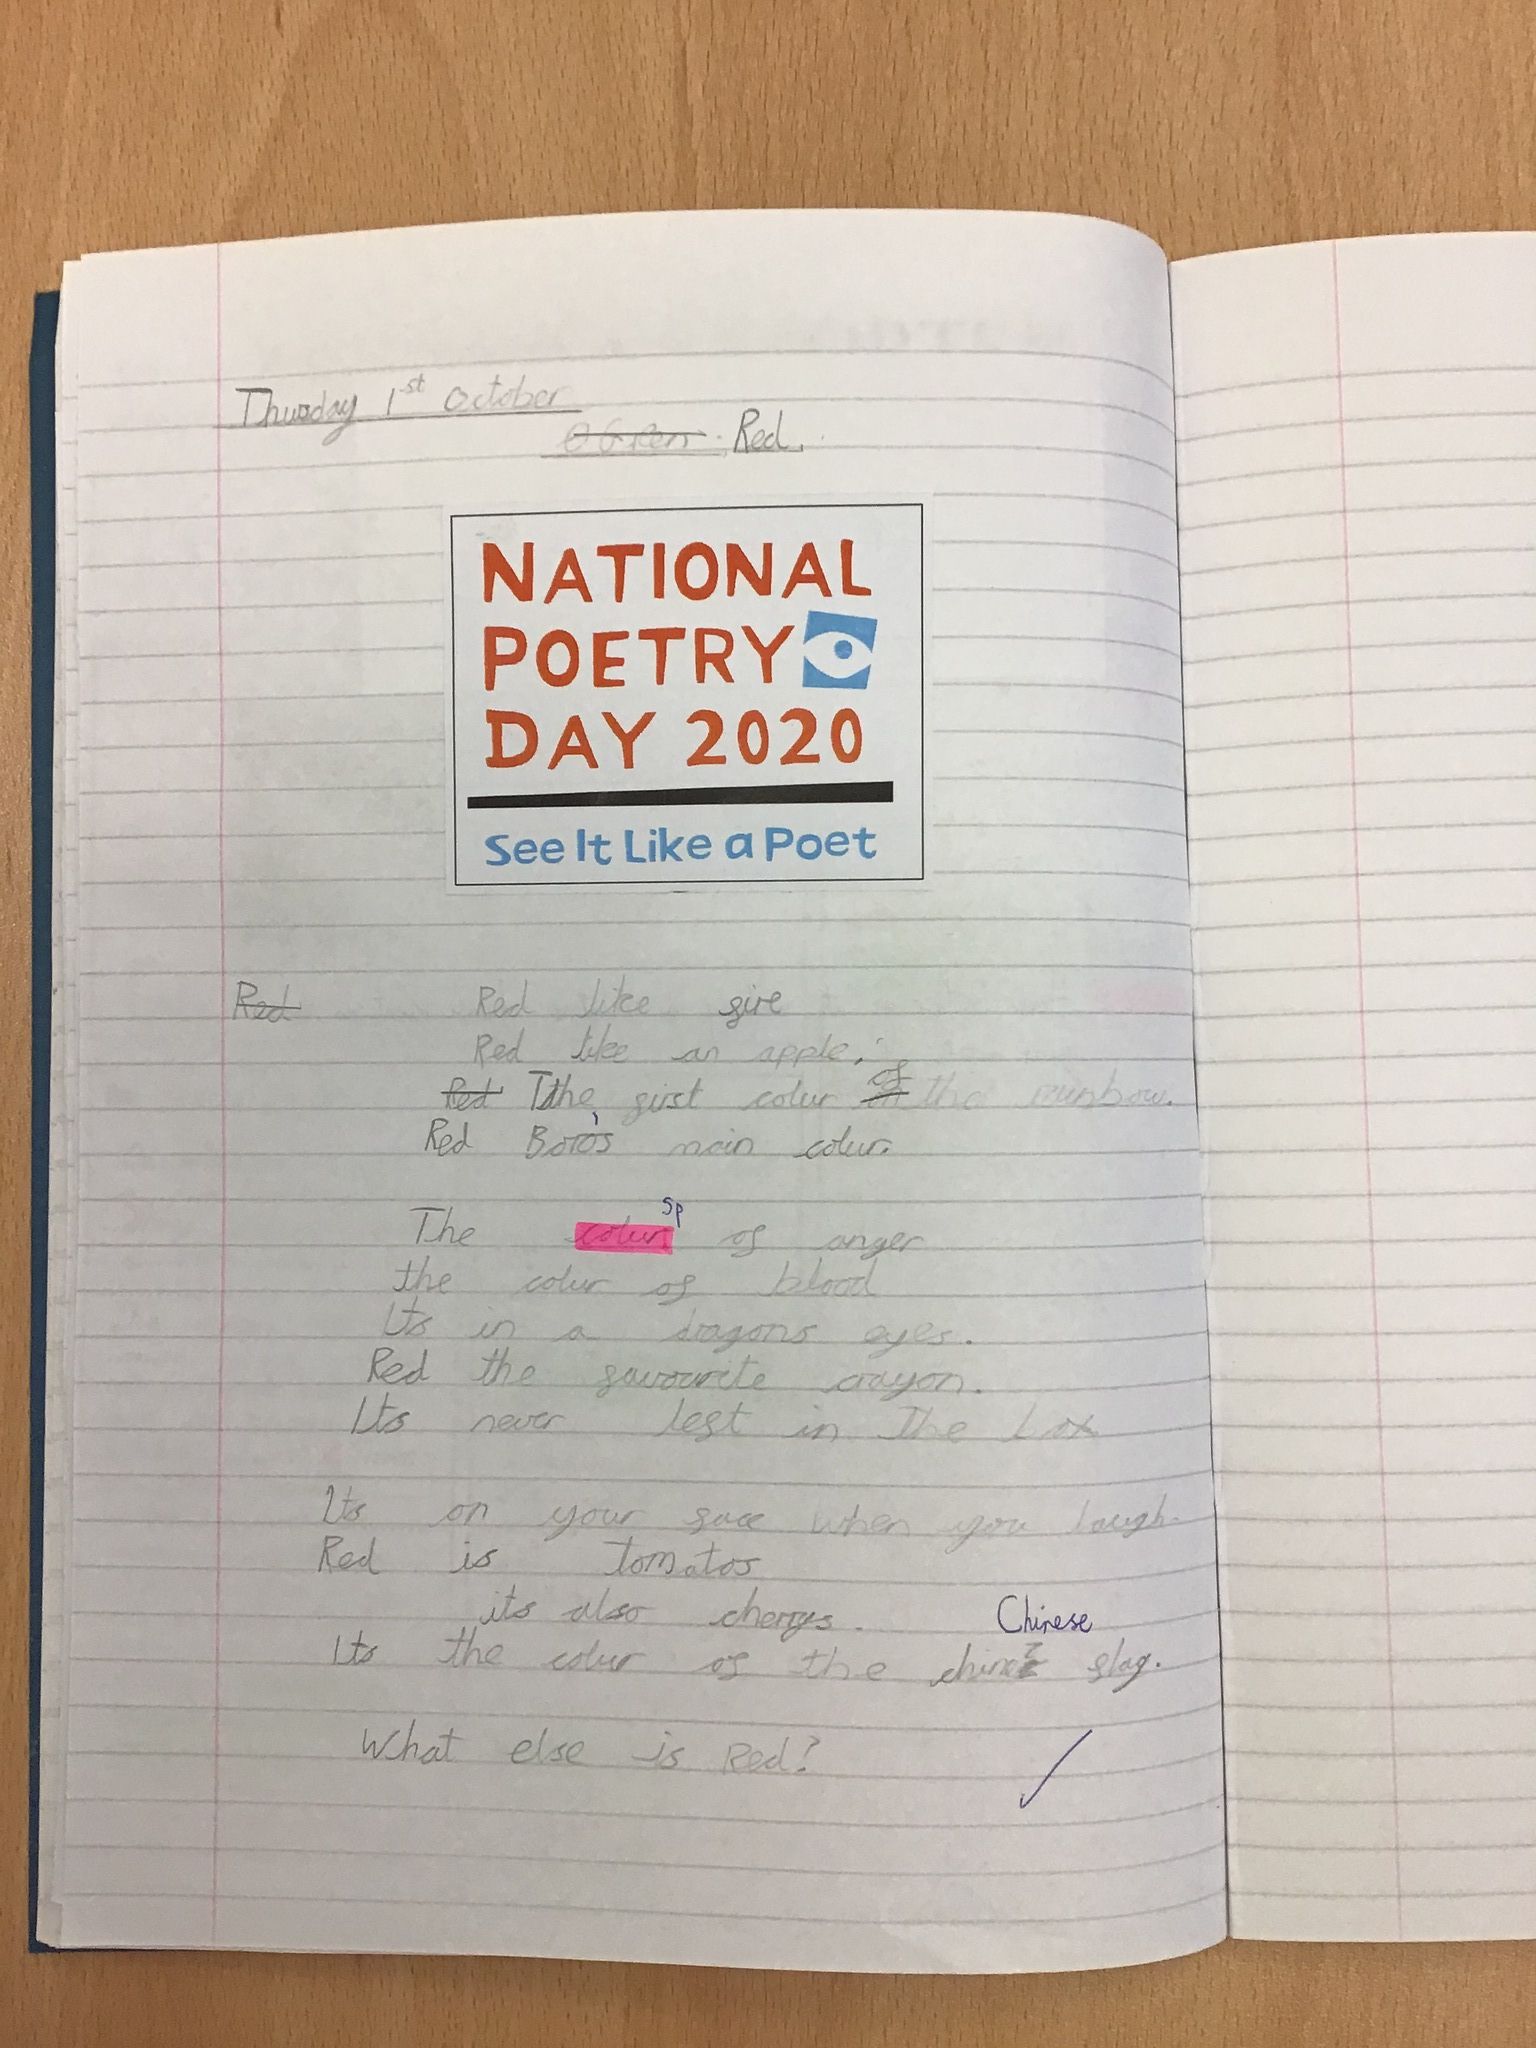 Thursday 1st October
Red.
NATIONAL
POETRY
DAY 2020
See It Like a Poet
Red Red like fire
Red like an apple.
Red The first colur of the rainbow.
Red Boro's main colur.
sp
The colur of anger
the colur of blood
Its in a dragons eyes.
Red the favourite crayon.
Its never left in the box
Its on your face when you laugh.
Red is tomatos
its also cherrys.
Chinese
Its the colur of the flag.
What else is Red?